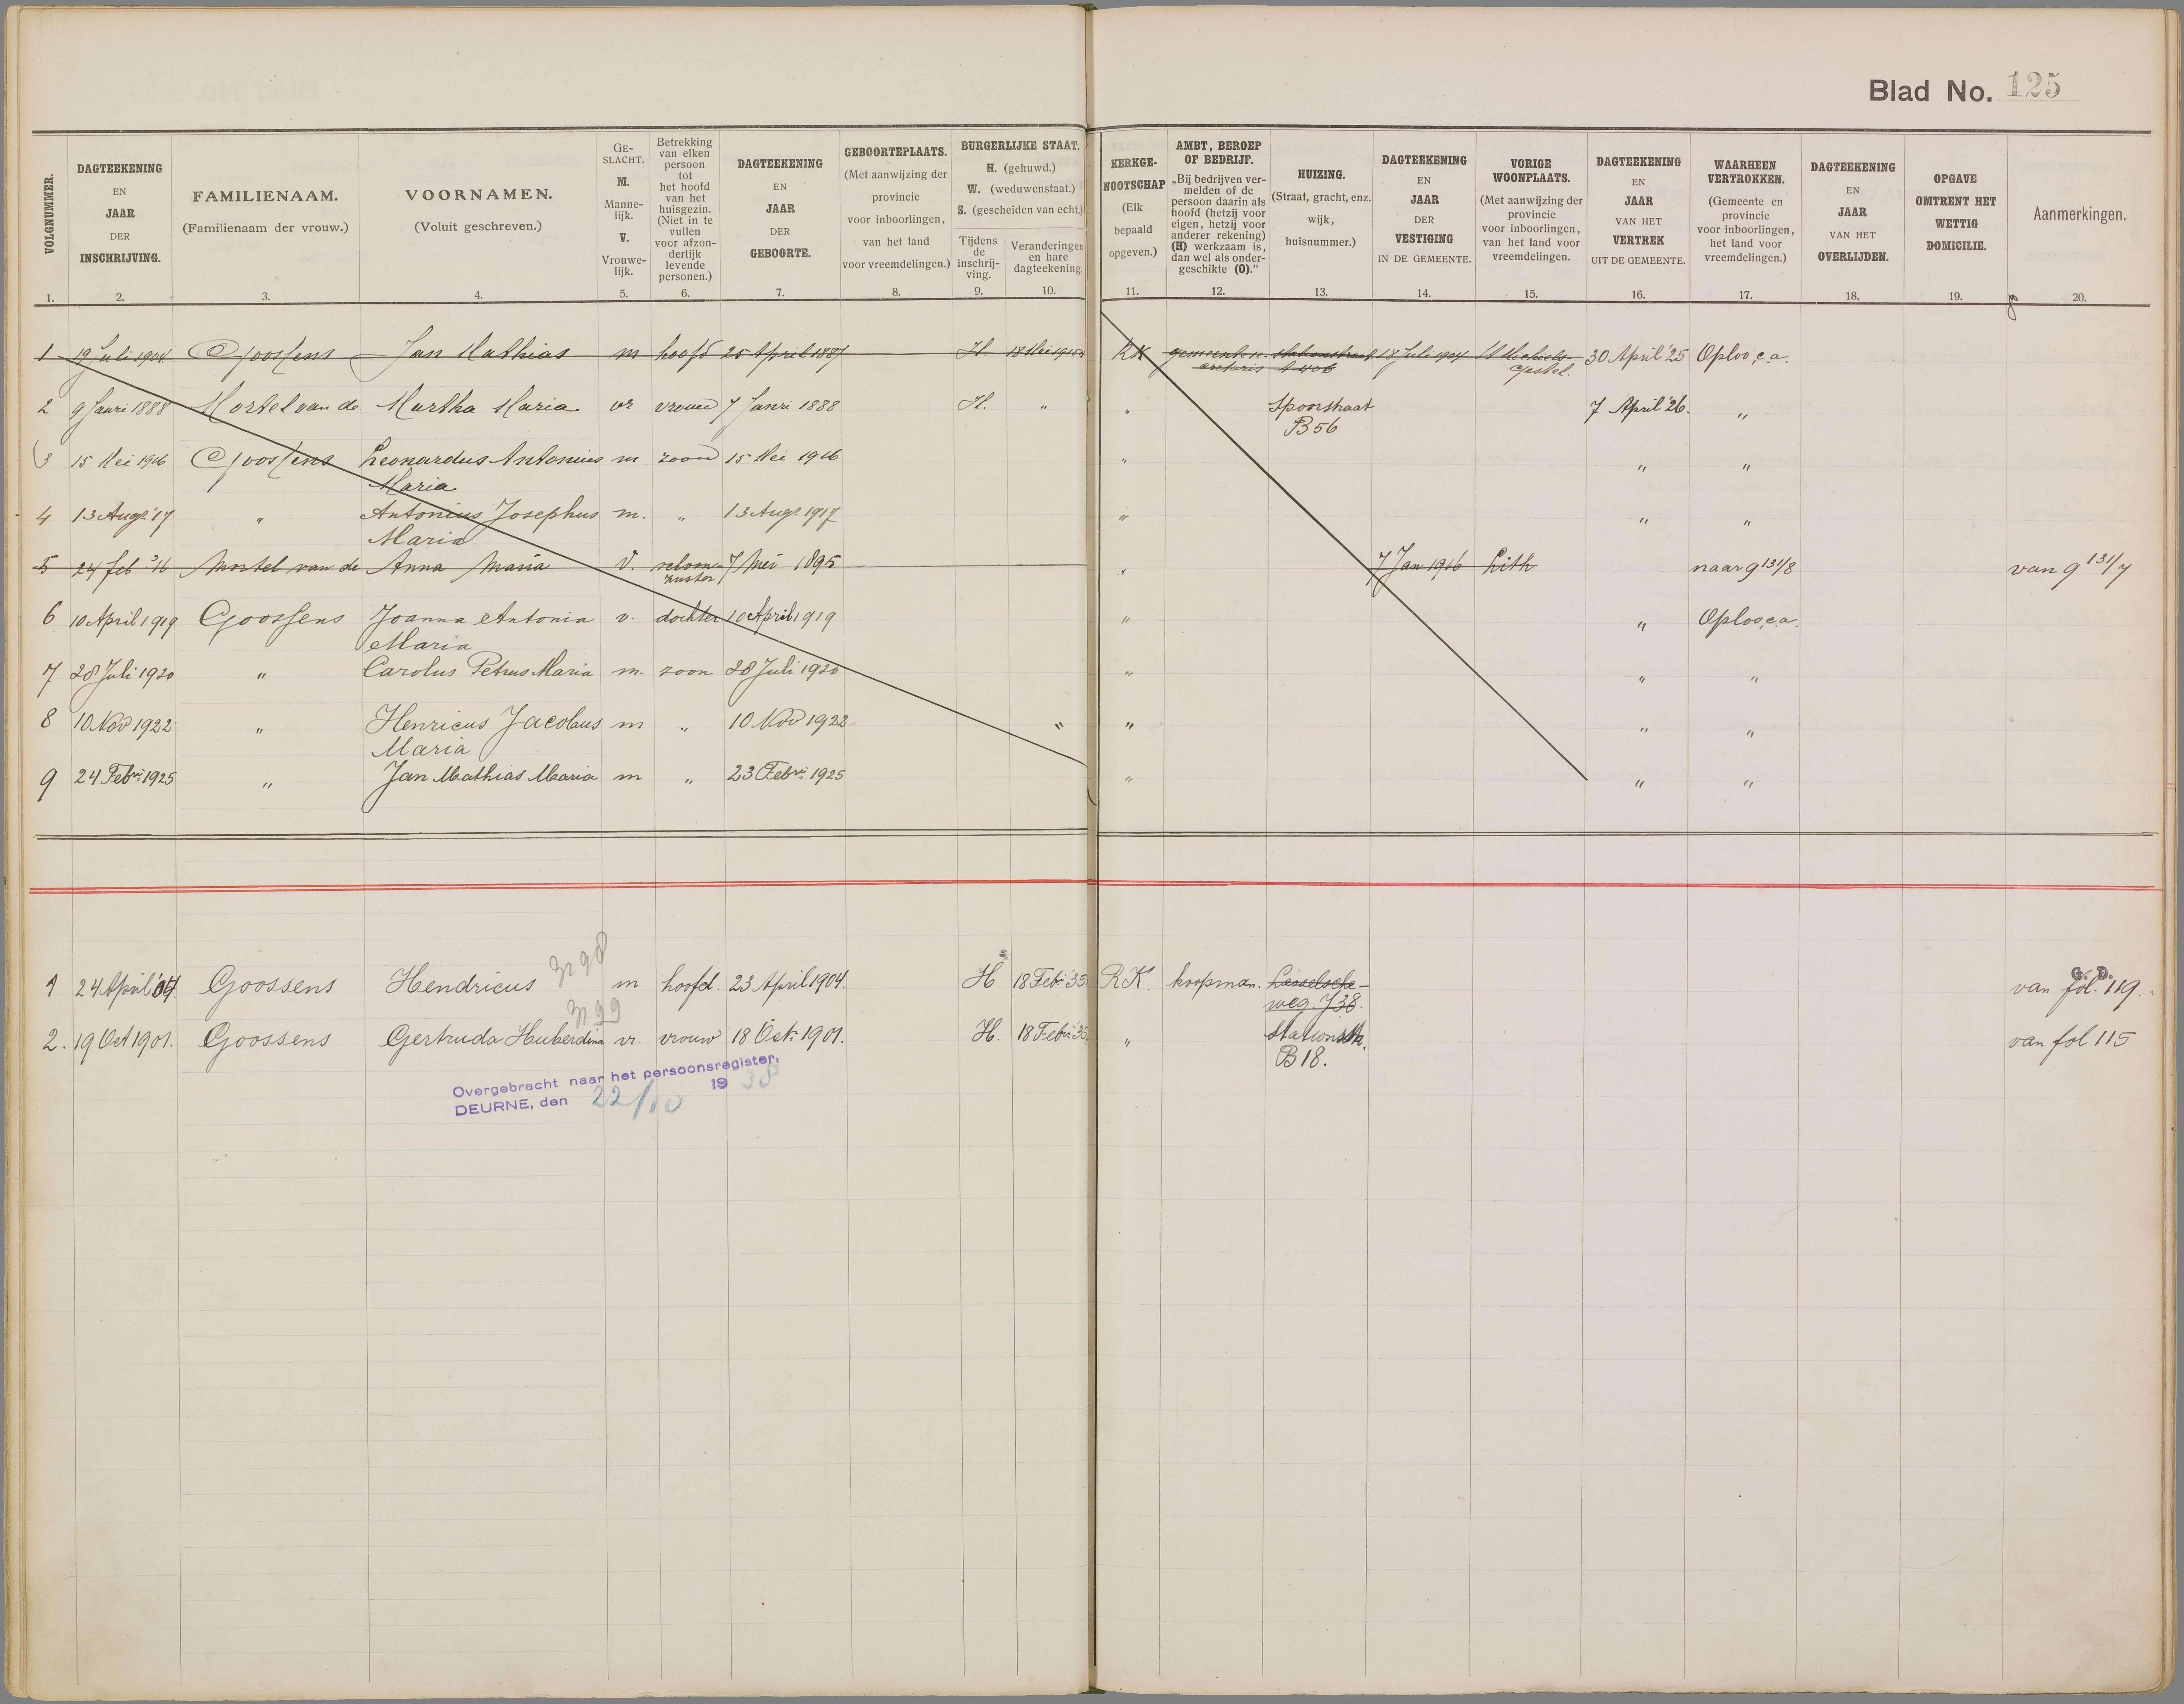 Blad No. 125
VOLGNUMMER.
DAGTEEKENING EN JAAR DER INSCHRIJVING.
FAMILIENAAM. (Familienaam der vrouw.)
VOORNAMEN. (Voluit geschreven.)
GE-SLACHT. M. Manne-lijk. V. Vrouwe-lijk.
Betrekking van elken persoon tot het hoofd van het huisgezin. (Niet in te vullen voor afzon-derlijk levende personen.)
DAGTEEKENING EN JAAR DER GEBOORTE.
GEBOORTEPLAATS. (Met aanwijzing der provincie voor inboorlingen, van het land voor vreemdelingen.)
BURGERLIJKE STAAT. H. (gehuwd.) W. (weduwenstaat.) S. (gescheiden van echt.)
Tijdens de inschrij-ving.
Veranderingen en hare dagteekening.
KERKGE-NOOTSCHAP (Elk bepaald opgeven.)
AMBT, BEROEP OF BEDRIJF. „Bij bedrijven ver-melden of de persoon daarin als hoofd (hetzij voor eigen, hetzij voor anderer rekening) (H) werkzaam is, dan wel als onder-geschikte (O)."
HUIZING. (Straat, gracht, enz. wijk, huisnummer.)
DAGTEEKENING EN JAAR DER VESTIGING IN DE GEMEENTE.
VORIGE WOONPLAATS. (Met aanwijzing der provincie voor inboorlingen, van het land voor vreemdelingen.
DAGTEEKENING EN JAAR VAN HET VERTREK UIT DE GEMEENTE.
WAARHEEN VERTROKKEN. (Gemeente en provincie voor inboorlingen, het land voor vreemdelingen.)
DAGTEEKENING EN JAAR VAN HET OVERLIJDEN.
OPGAVE OMTRENT HET WETTIG DOMICILIE.
Aanmerkingen.
1. 2. 3. 4. 5. 6. 7. 8. 9. 10. 11. 12. 13. 14. 15. 16. 17. 18. 19. 20.
1 19 Juli 1904 Goossens Jan Mathias m hoofd 25 April 1887 H. 18 Mei 1915 RK gemeente se- Stationstraat 18 Juli 1904 St Michiels- 30 April '25 Oploo, c.a.
cretaris A 406 Gestel.
2 9 Janri 1888 Mortel van de Martha Maria vr vrouw 7 Janri 1888 H. " " Spoorstraat 7 April '26. "
B 56
3 15 Mei 1916 Goossens Leonardus Antonius m zoon 15 Mei 1916 " " "
Maria
4 13 Augs '17 " Antonius Josephus m. " 13 Augs 1917 " " "
Maria
5 24 feb 16 Mortel van de Anna Maria V. schoon- 7 Mei 1895 " 7 Jan 1916 Lith naar 9 131/8 van 9 131/7
zuster
6 10 April 1919 Goossens Joanna Antonia v. dochter 10 April 1919 " " Oploo, c.a.
Maria
7 28 Juli 1920 " Carolus Petrus Maria m. zoon 28 Juli 1920 " " "
8 10 Nov 1922 " Henricus Jacobus m " 10 Nov 1922 " " " "
Maria
9 24 Febri 1925 " Jan Mathias Maria m " 23 Febri 1925 " " "
G. D.
1 24 April '04. Goossens Hendricus m hoofd. 23 April 1904. H 18 Feb. '35 RK. koopman. Liesselsche- van fol. 119.
weg. J 38.
2. 19 Oct 1901. Goossens Gertruda Huberdina vr. vrouw 18 Oct. 1901. H. 18 Febr. '35 " Stationstr. van fol 115
B 18.
Overgebracht naar het persoonsregister,
DEURNE, den 22/10 19 38